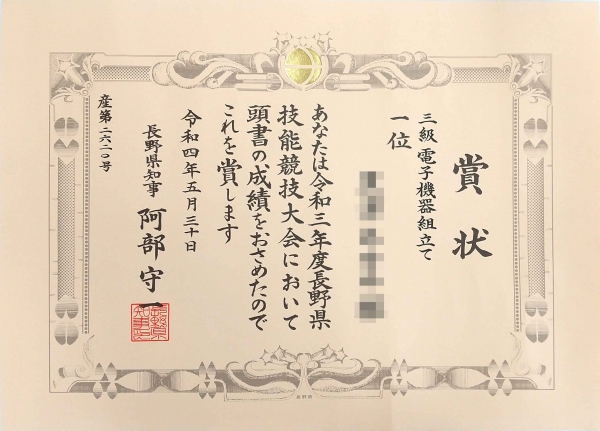 賞状
三級電子機器組立て
一位
あなたは令和三年度長野県
技能競技大会において
頭書の成績をおさめたので
これを賞します
令和四年五月三十日
長野県知事 阿部守一
産第二六二〇号